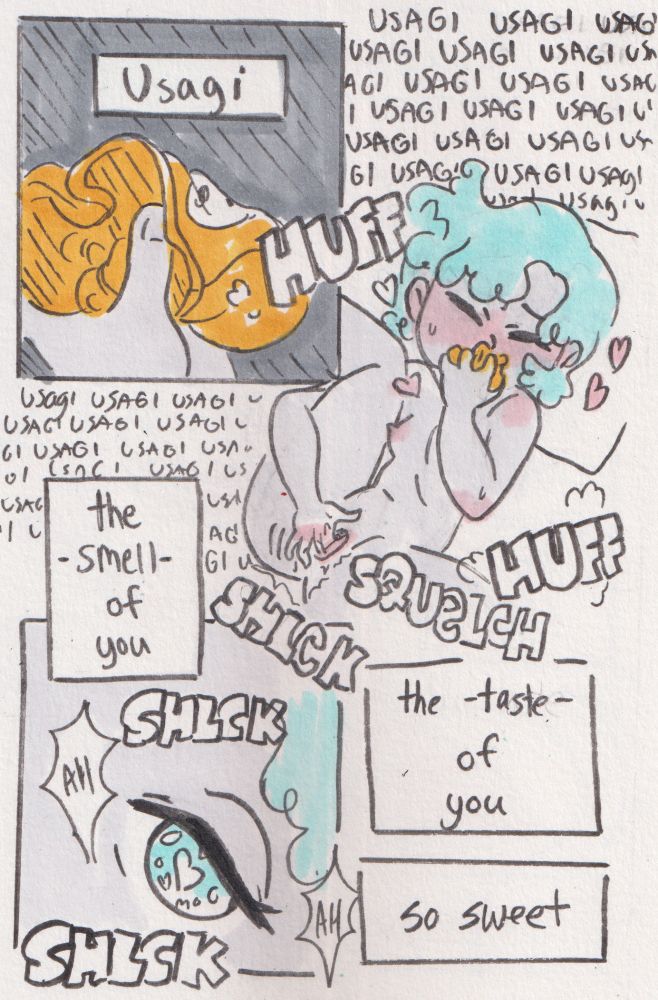 Usagi
USAGI USAGI USAGI
USAGI USAGI USAGI USA
AGI USAGI USAGI USAG
I USAGI USAGI USAGI U
USAGI USAGI USAGI US
GI USAGI USAGI USAGI
Usagi
HUFF
USAGI USAGI USAGI U
USAGI USAGI USAGI U
GI USAGI USAGI USA
USAGI US
USAG
USA
I U
AGI
GI U
the
-smell-
of
you
HUFF
SQUELCH
SHLCK
the -taste-
of
you
SHLCK
AH
AH
so sweet
SHLCK